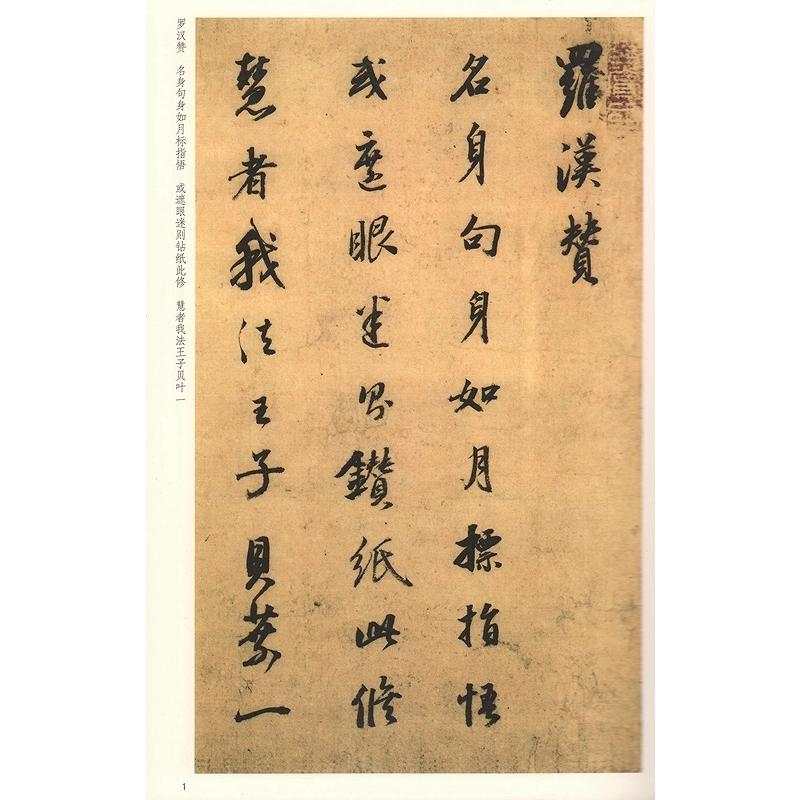 羅漢贊
名身句身如月標指悟
或遮眼迷則鑽紙此修
慧者我法王子貝葉一
罗汉赞　名身句身如月标指悟　或遮眼迷则钻纸此修　慧者我法王子贝叶一
1